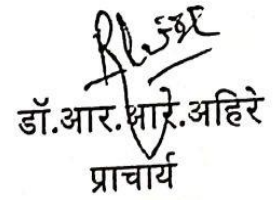 डॉ.आर.आरे.अहिरे
प्राचार्य